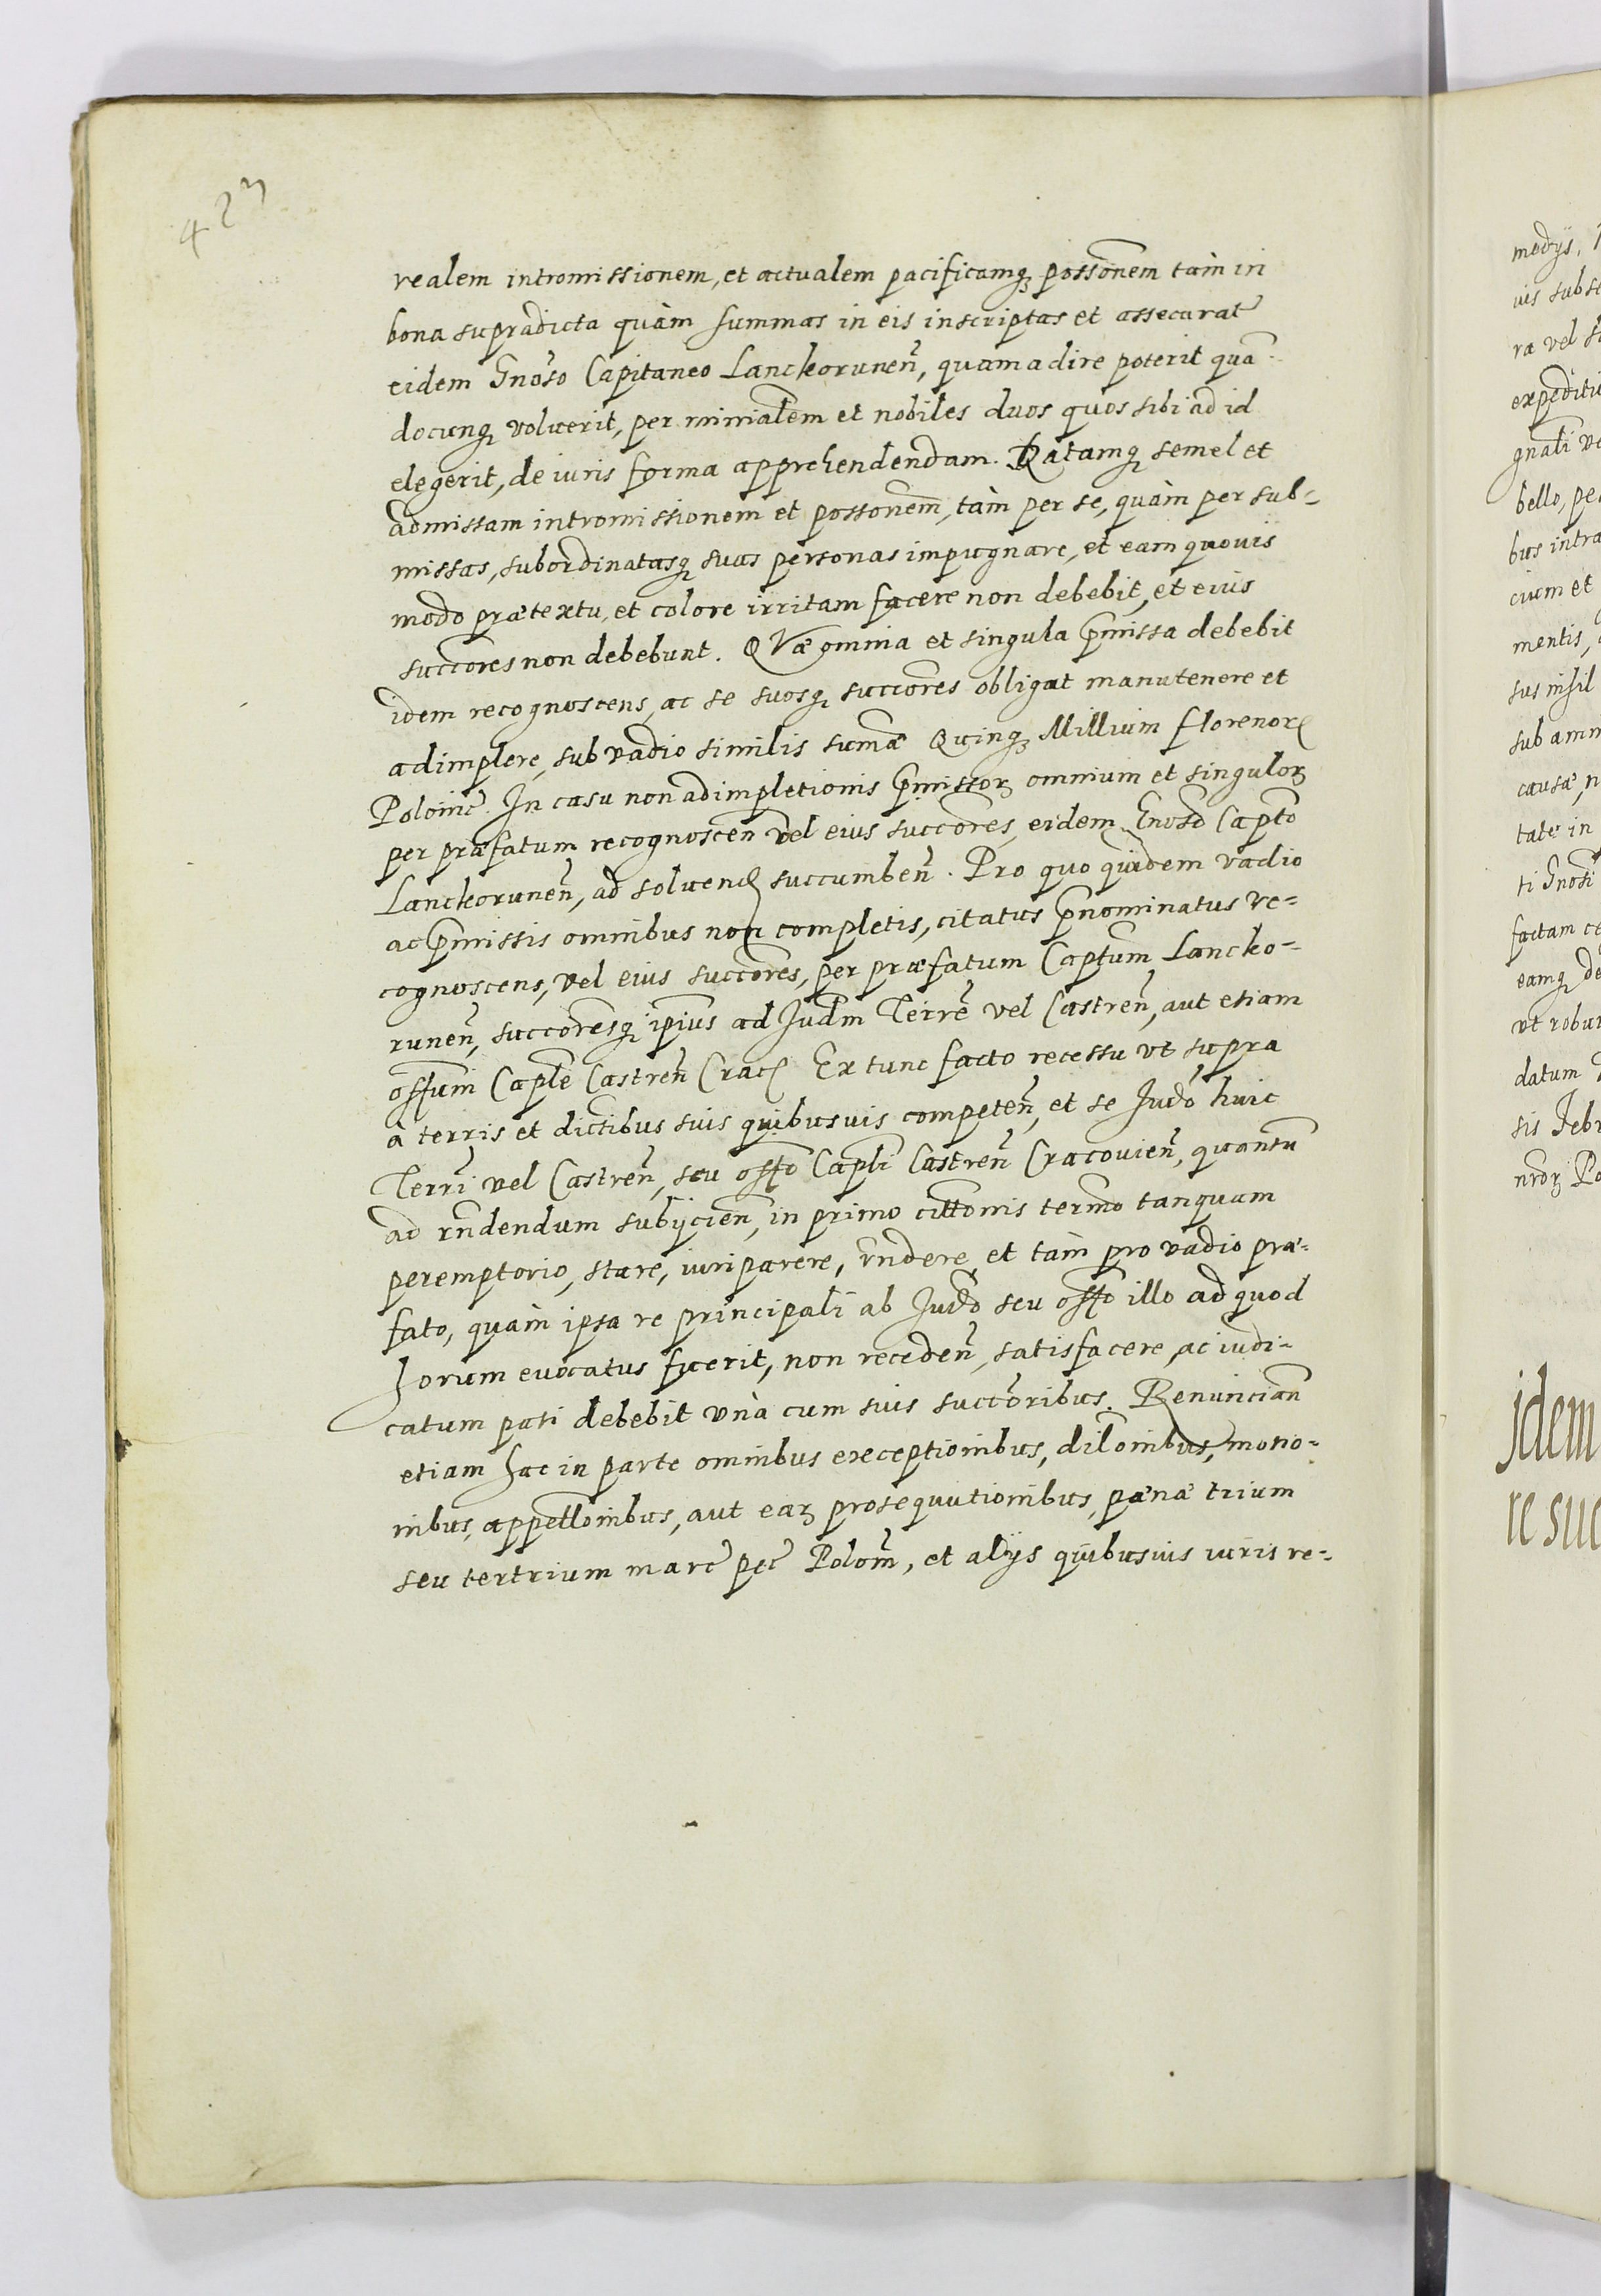 423
realem intromissionem, et actualem pacificamq₃ possõnem tàm in
bona supradicta quàm summas in eis inscriptas et assecurat
eidem Gnõso Capitaneo Lanckorunen̄, quam adire poterit quã
docunq₃ voluerit, per minialem et nobiles duos quos sibi ad id
elegerit, de iuris forma apprehendendam. Datamq₃ semel et
admissam intromissionem et possonem̃, tàm per se, quàm per sub-
missas, subordinatasq₃ suas personas impugnare, et eam quovis
modo prætextu, et colore irritam facere non debebit, et eius
succõres non debebunt. Quæ omnia et singula p̃missa debebit
idem recognoscens, ac se suosq₃ succõres obligat manutenere et
adimplere, sub vadio similis sum̃æ Quinq₃ Millium florenor
Polonic̃. In casu non adimpletionis p̃missor omnium et singulor
per præfatum recognoscen̄ vel eius succõres, eidem Gnoso Capto
Lanckorunen̄, ad soluend succumben̄. Pro quo quidem vadio
ac p̃missis omnibus non completis, citatus p̃nominatus re-
cognoscens, vel eius succõres, per præfatum Captum̃ Lancko-
runen̄, succõresq₃ ipius ad Judm̃ Terre vel Castren̄, aut etiam
offum̃ Caple Castren̄ Crac Ex tunc facto recessu ut supra
à terris et dictibus suis quibusvis competen̄, et se Judõ huic
Terri vel Castren̄, seu offõ Capli Castren̄ Cracovien̄, quantũ
ad rñdendum subijcien̄, in primo cittonis termo tanquam
peremptorio, stare, iuri parere, rñdere, et tàm pro vadio præ-
fato, quàm ipsa re principali ab Judõ seu offõ illo ad quod
forum evocatus fuerit, non receden̄, satisfacere, ac iudi-
catum pati debebit unà cum suis succõribus. Renuncian̄
etiam hac in parte omnibus exceptionibus, dilonibus, motio-
nibus, appellonibus, aut ear prosequutionibus, pænæ trium
seu tertrium marc pec Polon̄, et alijs quibusvis iuris re-
medijs,
expeditio
bello,
bus intra
cium et
mentis,
sub
causæ,
tate in
ti Gnosi
factam
eamq₃ de
ut robur
datum
sis
Idem
re suc